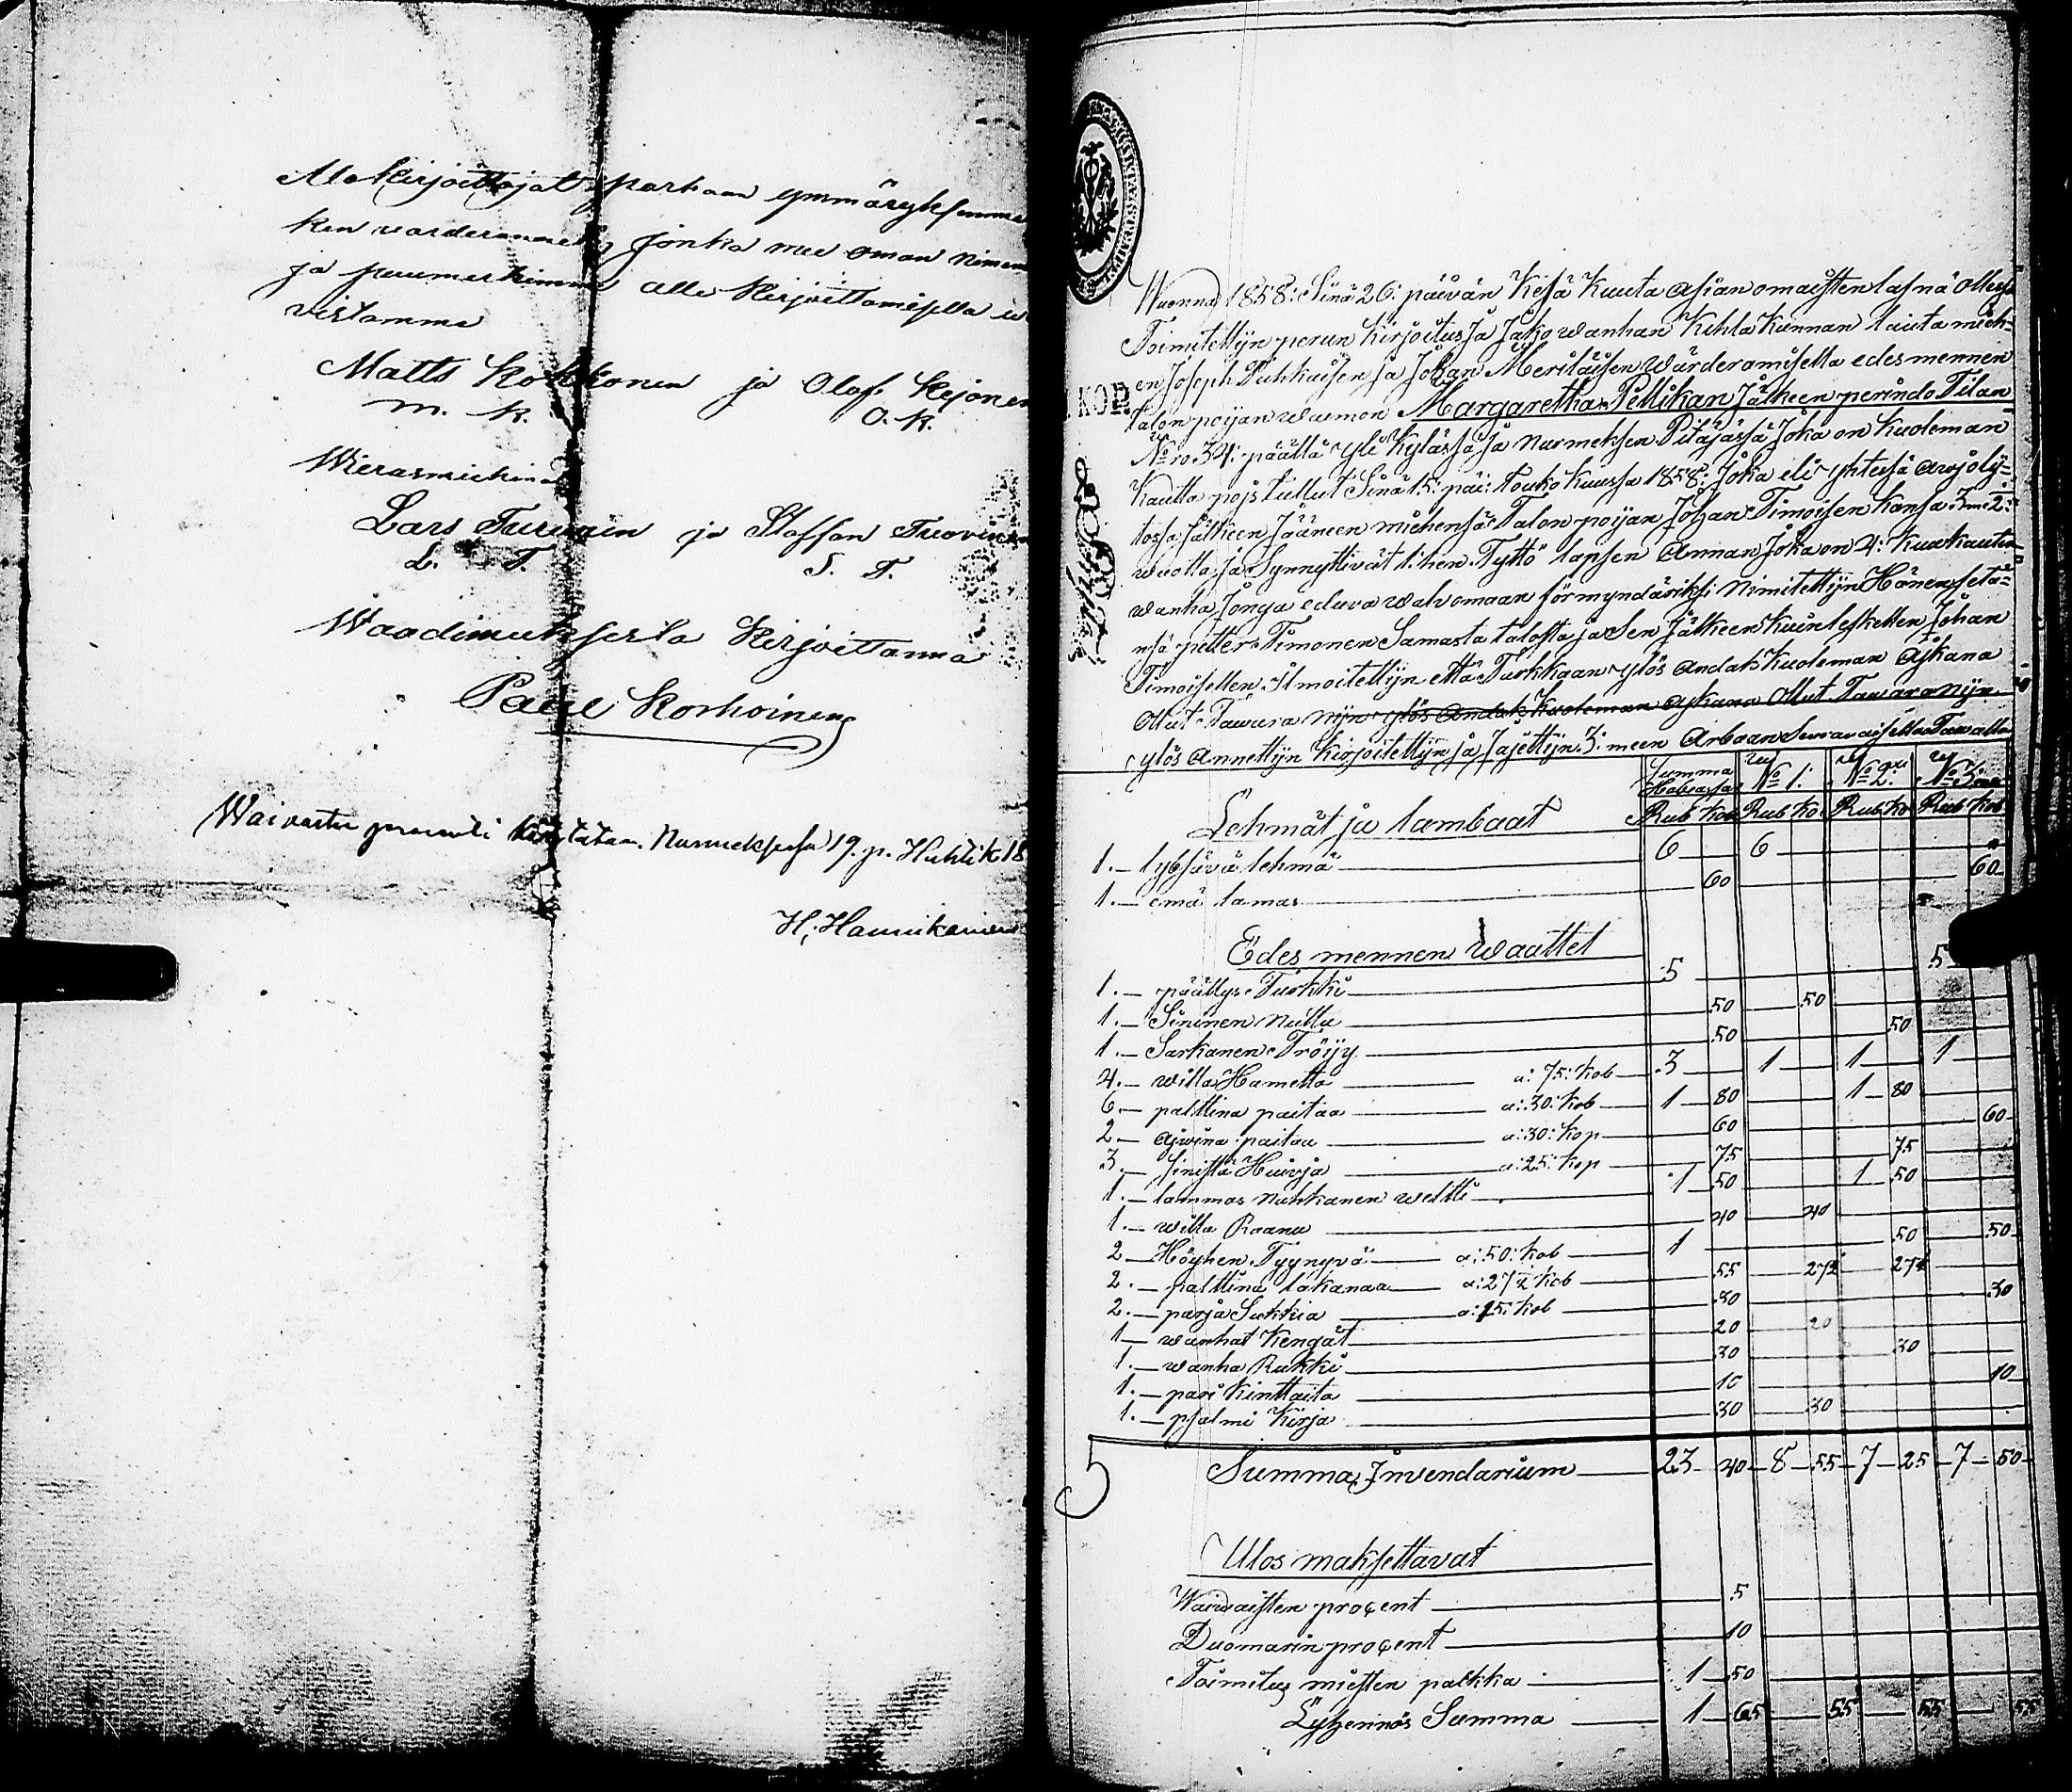 Ale Kirjoittajat parhaan ymmäryksemme
ken varderanneet, jonka mee oman nimem
ja puumerkimme alle kirjoittamisella wa
vistamme
Matts Kokkonen ja Olof Kejonen
m. k. O. K.
Wierasmiehinä
Lars Turunin ja Staffan Tuovinen
L. T. S. T.
Waadimuksesta Kirjoittanna
Paul Korhoinen
Waivasten prosentti kuitataan. Nurmeksessa 19. p. Huhtik 18
H. Hannikainen
KOP.
Wuonna 1858: Sinä 26: päivän Kesä Kuuta asianomaisten lasnä ollesa
Toimitettijn perun Kirjoitus Ja Jako wanhan Kihlakunnan lautamieh-
en Joseph Puhkaisen Ja Johan Meriläisen wärderamisella edesmennen
talon poijan waimon Margaretha Pellikan Jälkeen perindo Tilan
No ro 34: päältä yli Kylässä Ja Nurmeksen Pitäjässä Joka on Kuoleman
Kautta pojs tullut Sinä 15: päi: Touko Kuussa 1858: Joka eli yhtessä awjoly-
tossa Jälkeen Jääneen miehensä Talon poijan Johan Timoisen Kansa 3me 2:
wuotta, Ja Synnyttivät 1: hen Tyttö lapsen Annan Joka on 4: kuukautta
wanha Jonga eduva walvomaan förmyndäriksi Nimitettijn Hänen setä-
nsä petter Timonen Samasta talosta ja Sen Jälkeen kuin lesketten Johan
Timoisellen Ilmoitettijn että Turkkaan ylös andak Kuoleman Ajkana
Ollut Tawara nijn ylös andak Kuoleman ajkana Ollut Tawara Nijn
ylös Annettijn Kirjoitettijn Ja Jajettijn 3: meen Arbaan Seuraavaisella Tawalla
Summa No 1: No 2: No 3:
Lehmät ja lambaat Rub kob Rub ko Rub ko Rub kob
1.— lybsävä lehmä 6 6
1.— emä lamas 60 60
Edes mennen waattet
1.— päällys Turkki 5 5
1.— Sininen Nuttu 50 50
1.— Sarkanen Tröijy 50 50
4.— willa Hametta a: 75: kob 3 1 1 1
6.— palttina paitaa a: 30: kob 1 80 1 80
2.— Ajwina paitaa a: 30: kop 60 60
3.— sinistä Huivja a: 25: kop 75 75
1.— lammas nahkanen weltti 1 50 1 50
1.— willa Raanu 40 40
2.— Höyhen Tyynyvä a: 50: kob 1 50 50
2.— palttina lakanaa a: 27½ kob 55 27½ 27½
2.— parja Sukkia a: 15: kob 30 30
1.— wanhat kengät 20 20
1.— wanha Rukki 30 30
1.— pari Kinttaita 10 10
1.— psalmi Kirja 30 30
Summa Invendarium 23 40 8 55 7 25 7 50
Ulos maksettavat
Waiwaisten procent 5
Duomarin procent 10
Toimitus miesten palkka 1 50
Lyhennös Summa 1 65 55 55 55